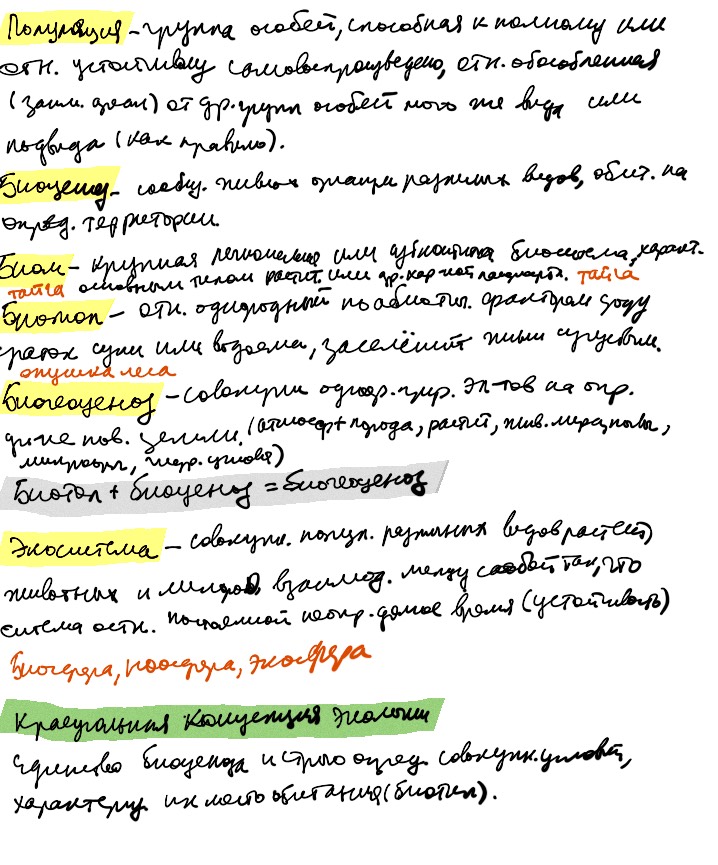 Популяция - группа особей, способная к полному или
отн. устойчивому самовоспроизведению, отн. обособленная
(заним. ареал) от др. групп особей того же вида или
подвида (как правило).
Биоценоз - сообщ. живых организмов различных видов, обит. на
опред. территории.
Биом - крупная региональная или субконтин. биосистема, характ.
тайга основным типом растит. или др. хар-кой ландшафта. тайга
Биотоп - отн. однородный по абиотич. факторам среды
участок суши или водоема, заселённый живыми существами.
опушка леса
Биогеоценоз - совокупн однор. прир. эл-тов на опр.
пов. земли. (атмосф + порода, растит, жив. мера, почвы,
микроорг, гидр. условия)
Биотоп + биоценоз = биогеоценоз
Экосистема - совокупн. попул. различных видов растений
животных и микроб взаимод. между собой так, что
система остн. постоянной неопр. долгое время (устойчивость)
Биосфера, ноосфера, экосфера
Краеугольная концепция экологии
единство биоценоза и строго опред. совокупн. условий,
характериз. их место обитания (биотоп).